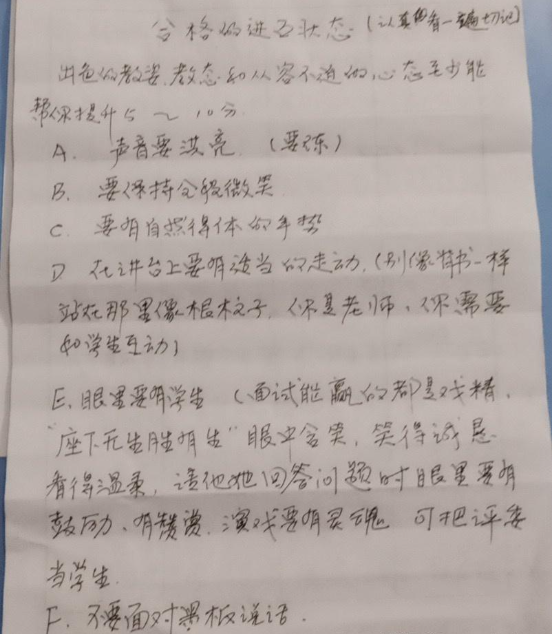 合格的进面状态（认真看一遍切记）
出色的教姿、教态和从容不迫的心态至少能
帮你提升5～10分.
A. 声音要洪亮.（要练）
B. 要保持全程微笑.
C. 要有自然得体的手势
D. 在讲台上要有适当的走动.（别像背书一样
站在那里像根柱子，你是老师，你需要
和学生互动）
E. 眼里要有学生（面试能赢的都是戏精，
"座下无生胜有生"眼中含笑，笑得诚恳
看得温柔，请他她回答问题时眼里要有
鼓励、有赞赏.演戏要有灵魂 可把评委
当学生.
F. 不要面对黑板说话.